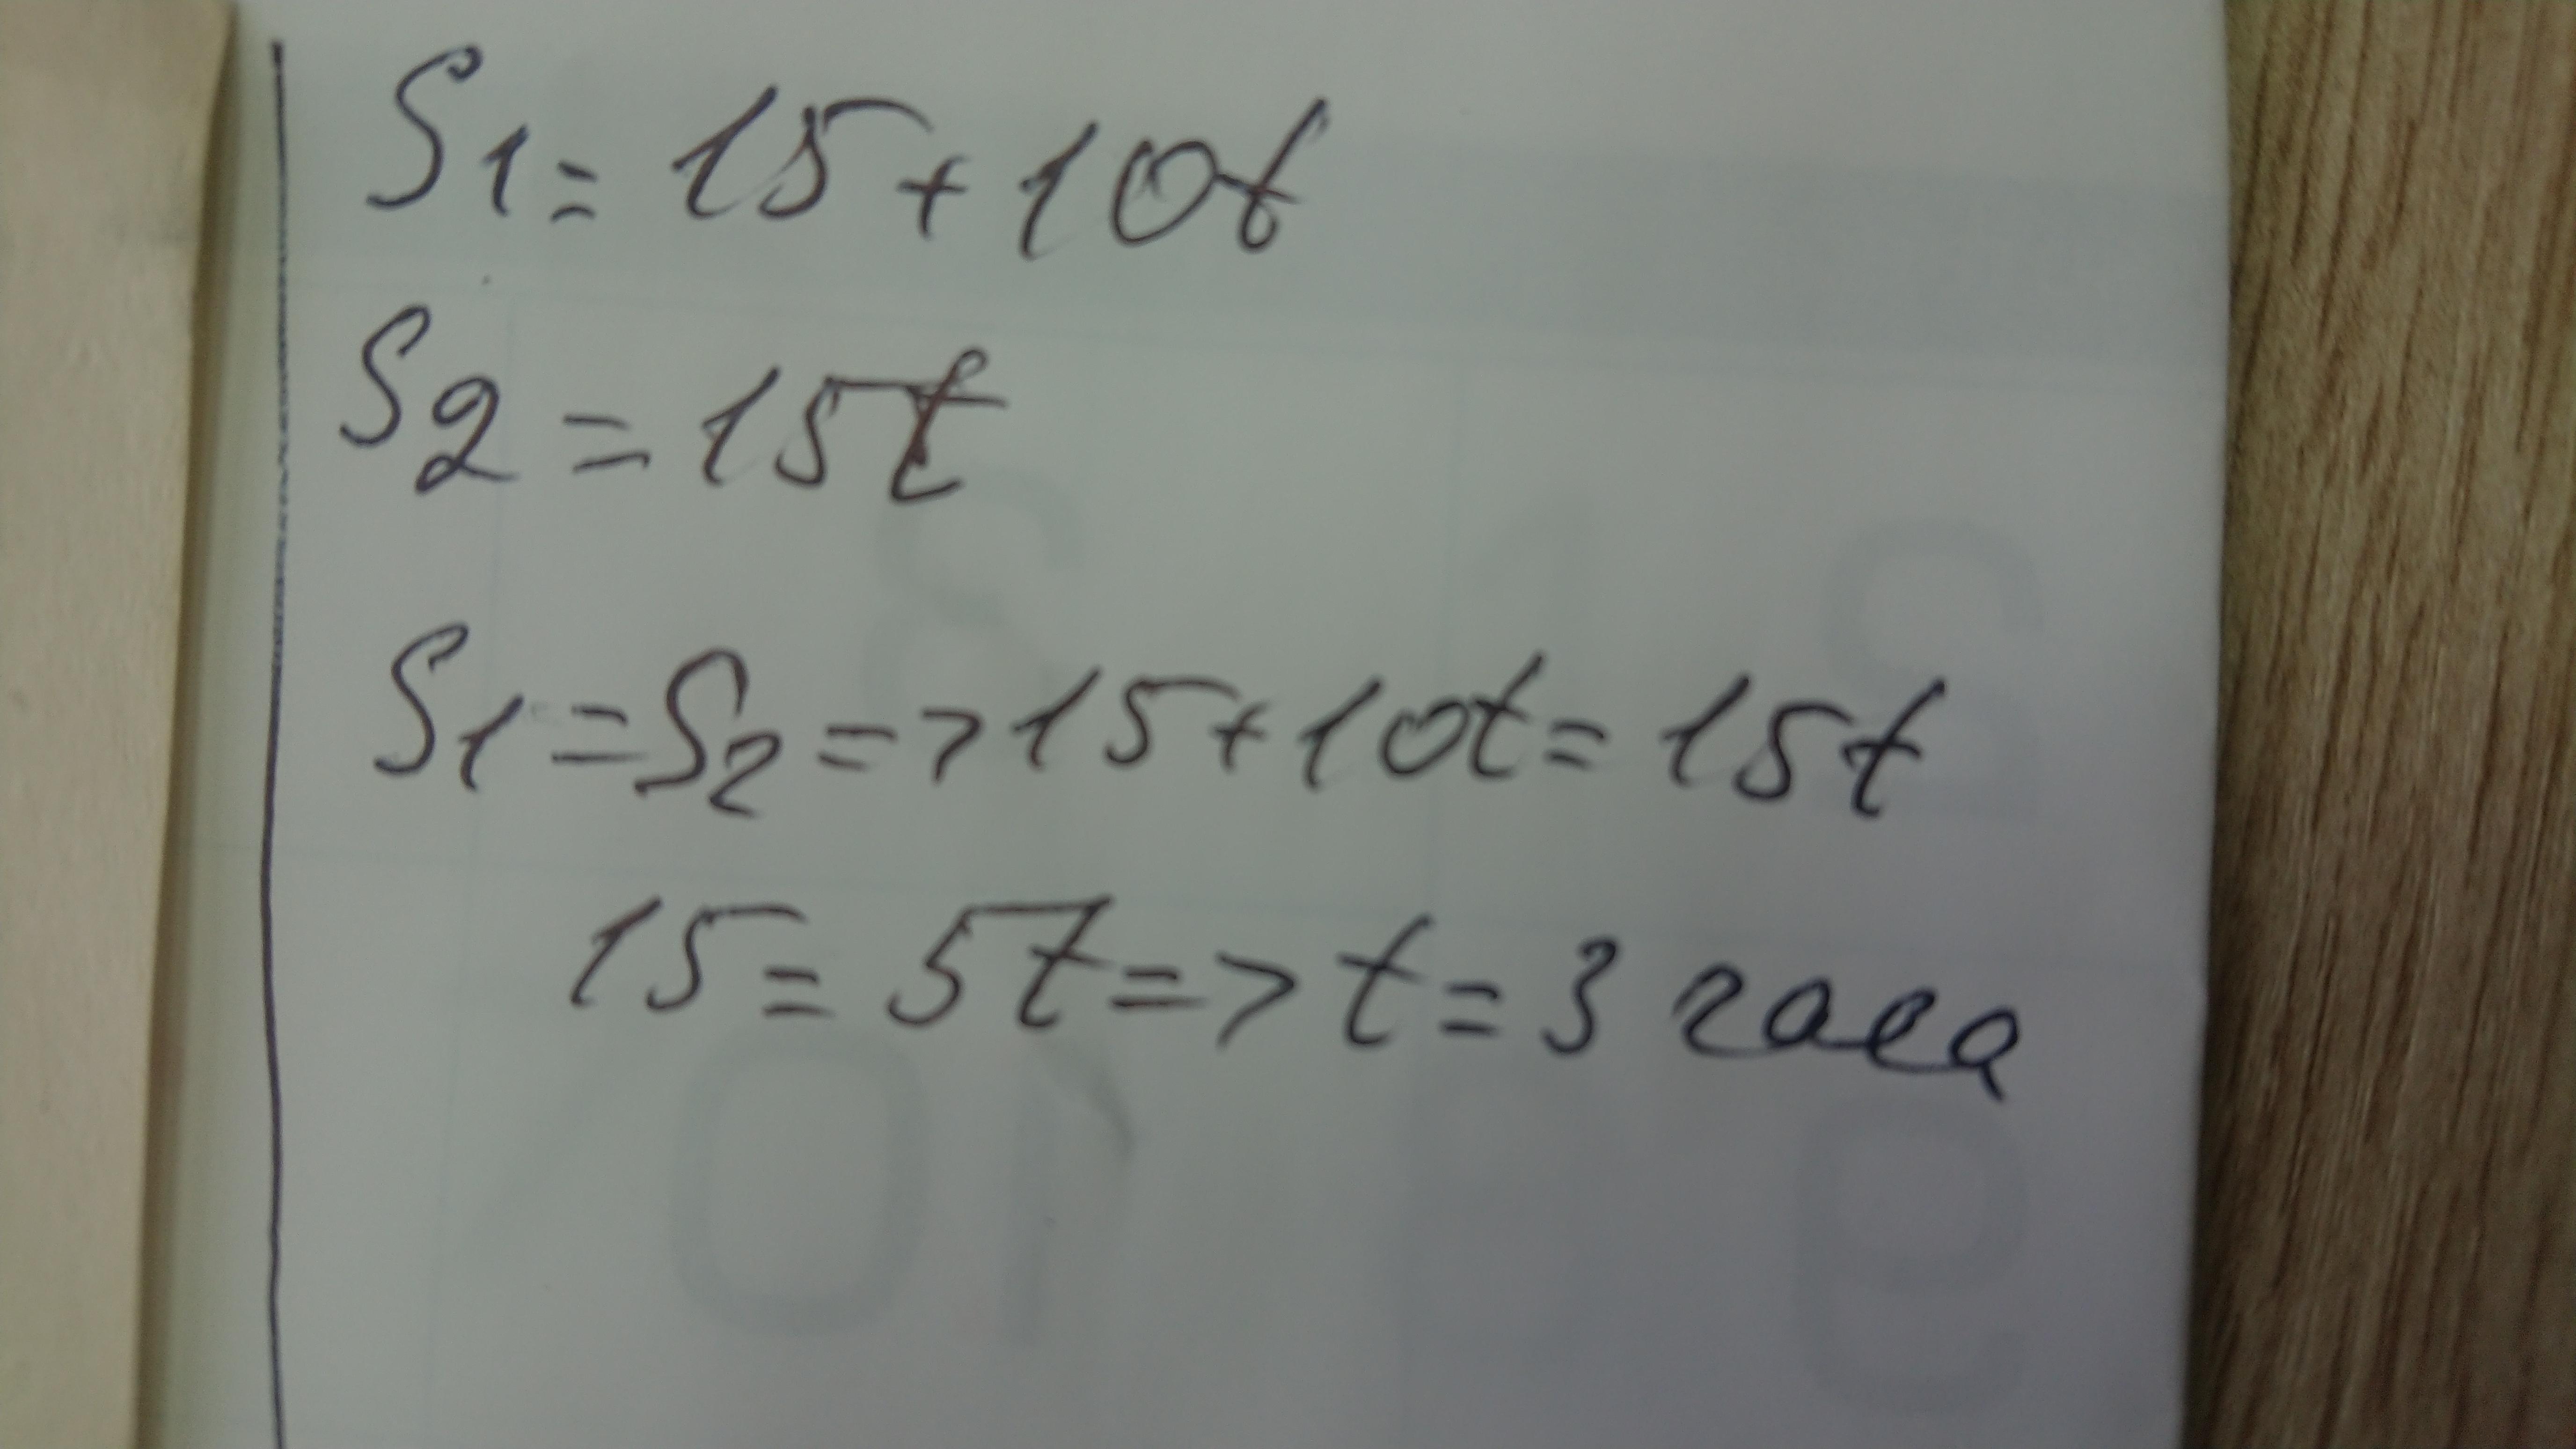 S1 = 15 + 10t
S2 = 15t
S1 = S2 => 15 + 10t = 15t
15 = 5t => t = 3 часа